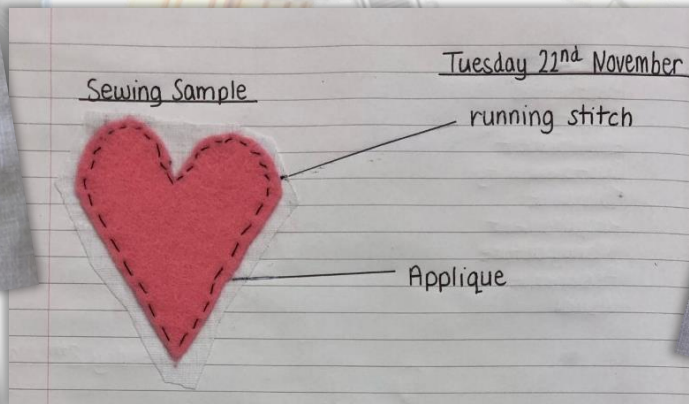 Tuesday 22nd November
Sewing Sample
running stitch
Applique